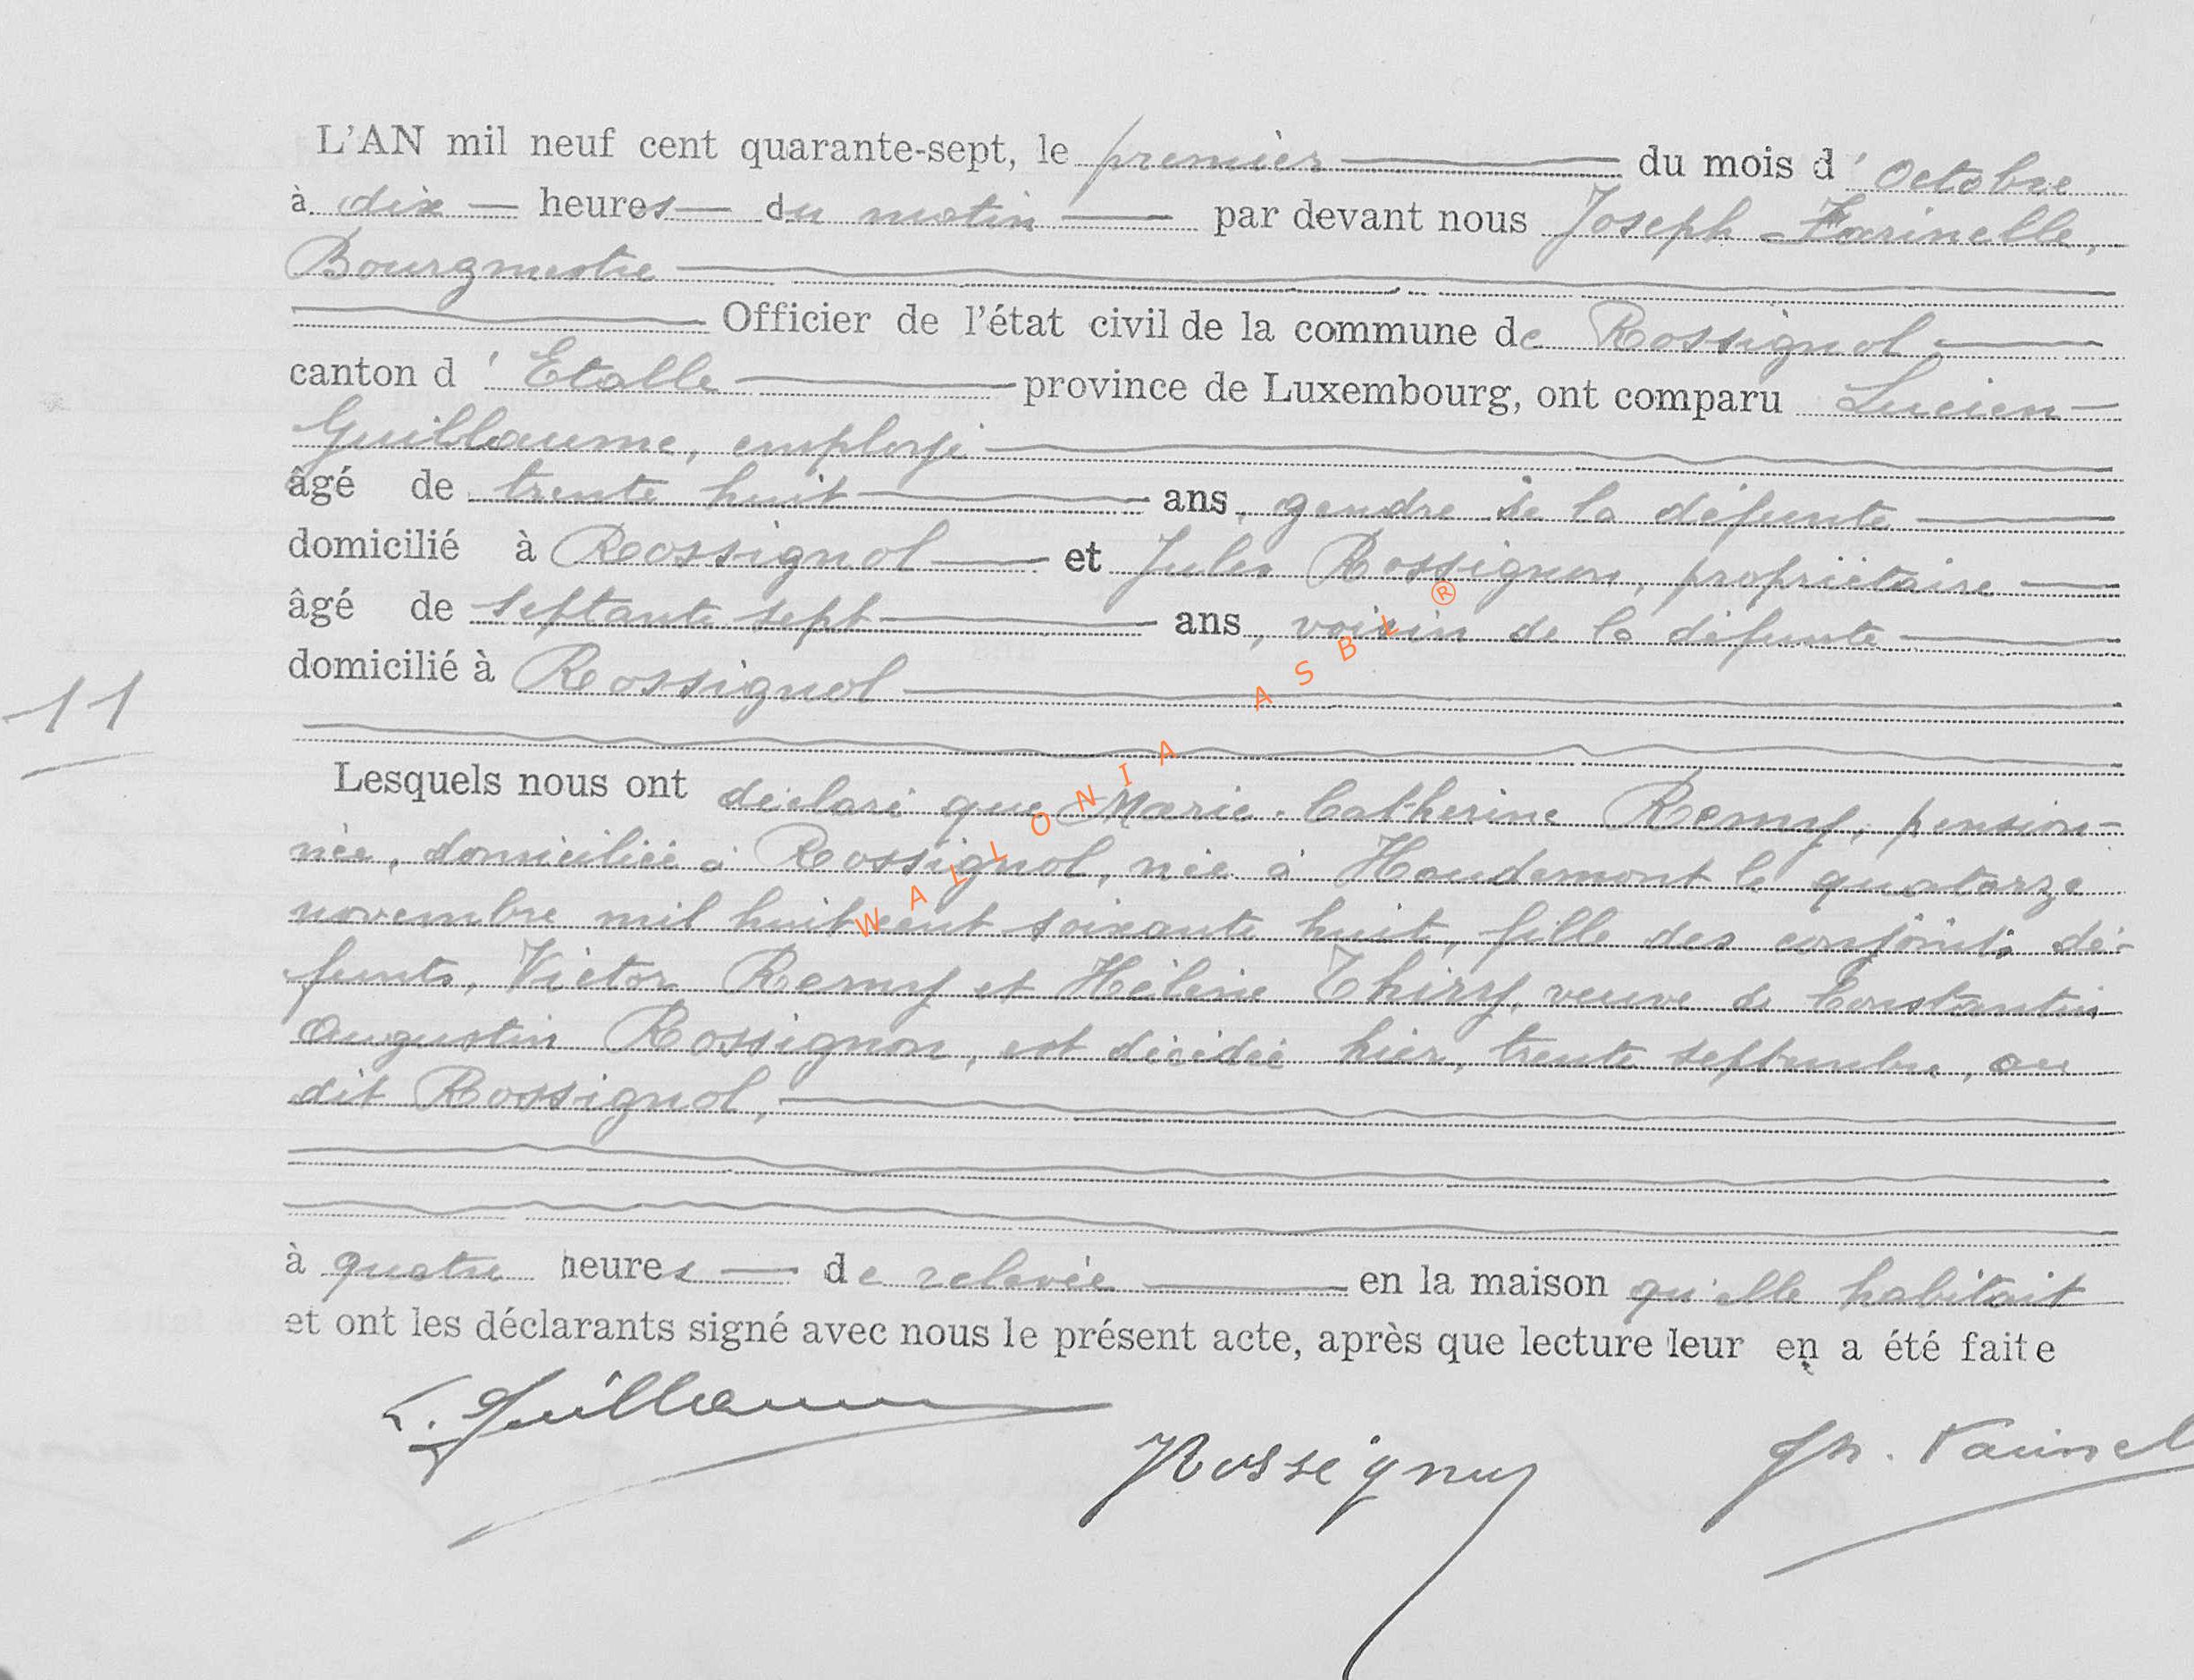 L'AN mil neuf cent quarante-sept, le premier du mois d'Octobre
à dix heures du matin par devant nous Joseph Farinelle,
Bourgmestre
Officier de l'état civil de la commune de Rossignol
canton d'Etalle province de Luxembourg, ont comparu Lucien
Guillaume, employé
âgé de trente huit ans, gendre de la défunte
domicilié à Rossignol et Jules Rossignon, propriétaire
âgé de septante sept ans, voisin de la défunte
domicilié à Rossignol
11
Lesquels nous ont déclaré que Marie-Catherine Remy, pension-
née, domiciliée à Rossignol, née à Houdemont le quatorze
novembre mil huit cent soixante huit, fille des conjoints dé-
funts, Victor Remy et Hélène Thiry, veuve de Constantin
Augustin Rossignon, est décédée hier, trente septembre, au
dit Rossignol,
à quatre heures de relevée en la maison qu'elle habitait
et ont les déclarants signé avec nous le présent acte, après que lecture leur en a été faite
L. Guillaume
Rossignon
WALLONIA ASBL ®